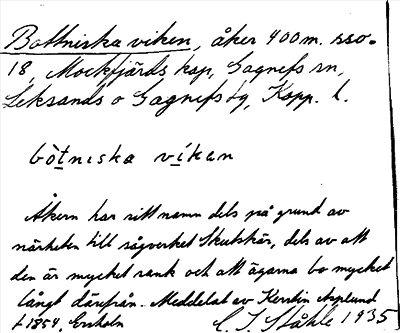 Bottniska viken, åker 400 m. sso.
18, Mockfjärds kap, Gagnefs sn,
Leksands o Gagnefs tg, Kopp. l.
bòtniska víkan
Åkern har sitt namn dels på grund av
närheten till sågverket Skutskär, dels av att
den är mycket sank och att ägarna bo mycket
långt därifrån. Meddelat av Kerstin Asplund
f 1854,
C. I. Ståhle 1935